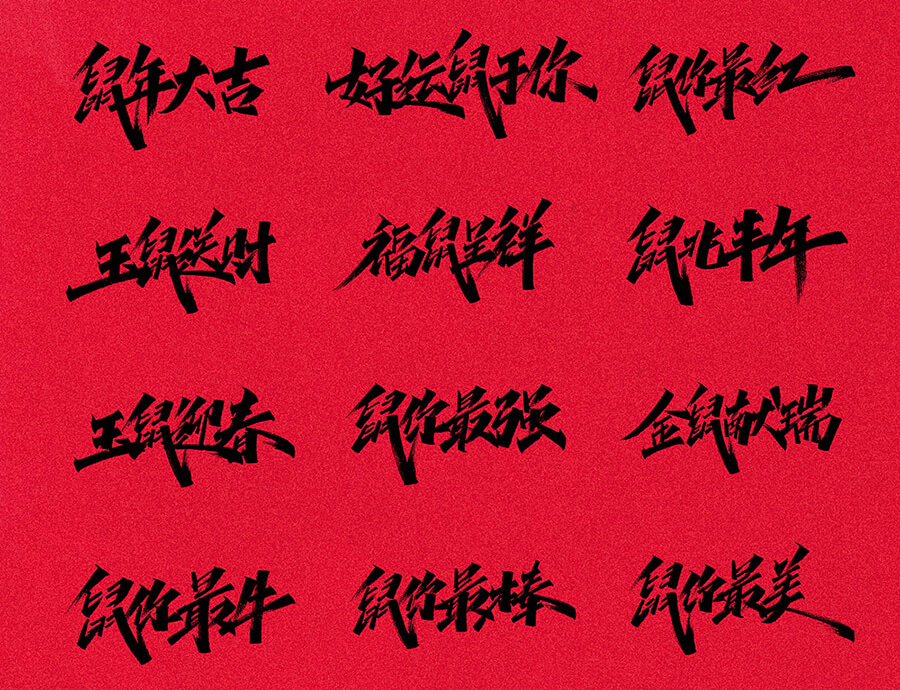 鼠年大吉
好运鼠于你
鼠你最红
玉鼠送财
福鼠呈祥
鼠兆丰年
玉鼠迎春
鼠你最强
金鼠献瑞
鼠你最牛
鼠你最棒
鼠你最美